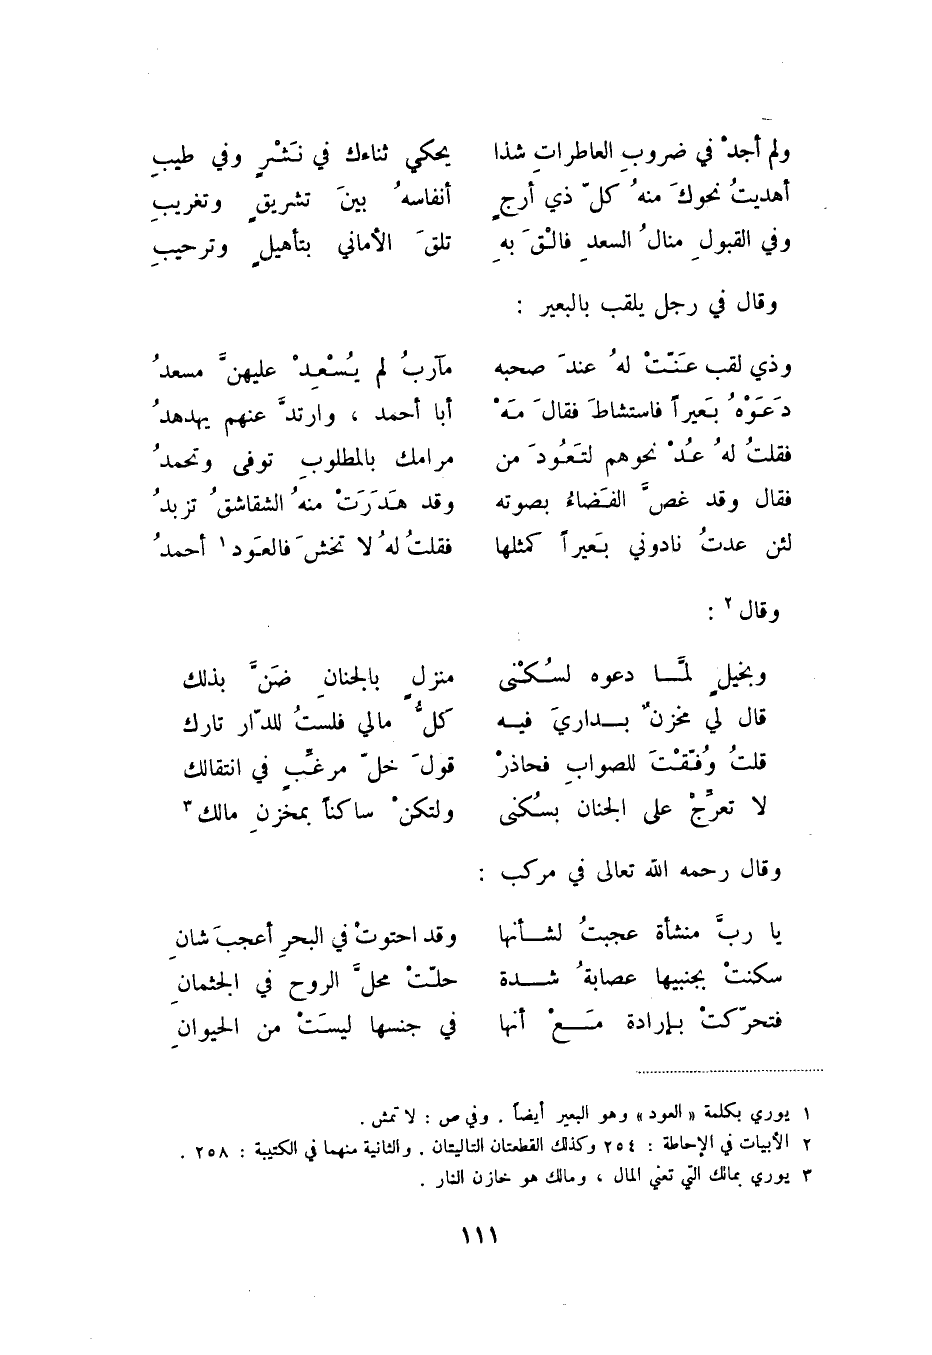 ولم أجدْ في ضروبِ العاطراتِ شذا يحكي ثناءك في نَشْرٍ وفي طيبِ
أهديتُ نحوكَ منهُ كلّ ذي أرجٍ أنفاسهُ بينَ تشريقٍ وتغريبِ
وفي القبولِ منالُ السعدِ فالْقَ بهِ تلقَ الأماني بتأهيلٍ وترحيبِ
وقال في رجل يلقب بالبعير :
وذي لقب عَنّتْ لهُ عندَ صحبه مآربُ لم يُسْعِدْ عليهنَّ مسعدُ
دَعَوْهُ بَعيراً فاستشاطَ فقالَ مَهْ أبا أحمد ، وارتدَّ عنهم يهدهدُ
فقلتُ لهُ عُدْ نحوهم لتَعُودَ من مرامك بالمطلوبِ توفى وتحمدُ
فقال وقد غصَّ الفَضاءُ بصوته وقد هَدَرَتْ منهُ الشقاشقُ تزبدُ
لئن عدتُ نادوني بَعيراً كمثلها فقلتُ لهُ لا تخشَ فالعَود ١ أحمدُ
وقال ٢ :
وبخيلٍ لمَّــا دعوه لسُكْنى منزلٍ بالجنانِ ضَنَّ بذلك
قال لي مخزنٌ بــداريَ فيــه كلُّ مالي فلستُ للدّار تارك
قلتُ وُفّقْتَ للصوابِ فحاذرْ قولَ خلّ مرغِّبٍ في انتقالك
لا تعرِّجْ على الجنان بسُكنى ولتكنْ ساكناً بمخزنِ مالك ٣
وقال رحمه الله تعالى في مركب :
يا ربَّ منشأة عجبتُ لشــأنها وقد احتوتْ في البحرِ أعجبَ شانِ
سكنتْ بجنبيها عصابةُ شــدة حلّتْ محلَّ الروح في الجثمانِ
فتحرّكتْ بـإرادة مَــعْ أنها في جنسها ليسَتْ من الحيوانِ
١ يوري بكلمة «العود» وهو البعير أيضاً . وفي ص : لا تمش .
٢ الأبيات في الإحاطة : ٢٥٤ وكذلك القطعتان التاليتان . والثانية منهما في الكتيبة : ٢٥٨ .
٣ يوري بمالك التي تعني المال ، ومالك هو خازن النار .
١١١